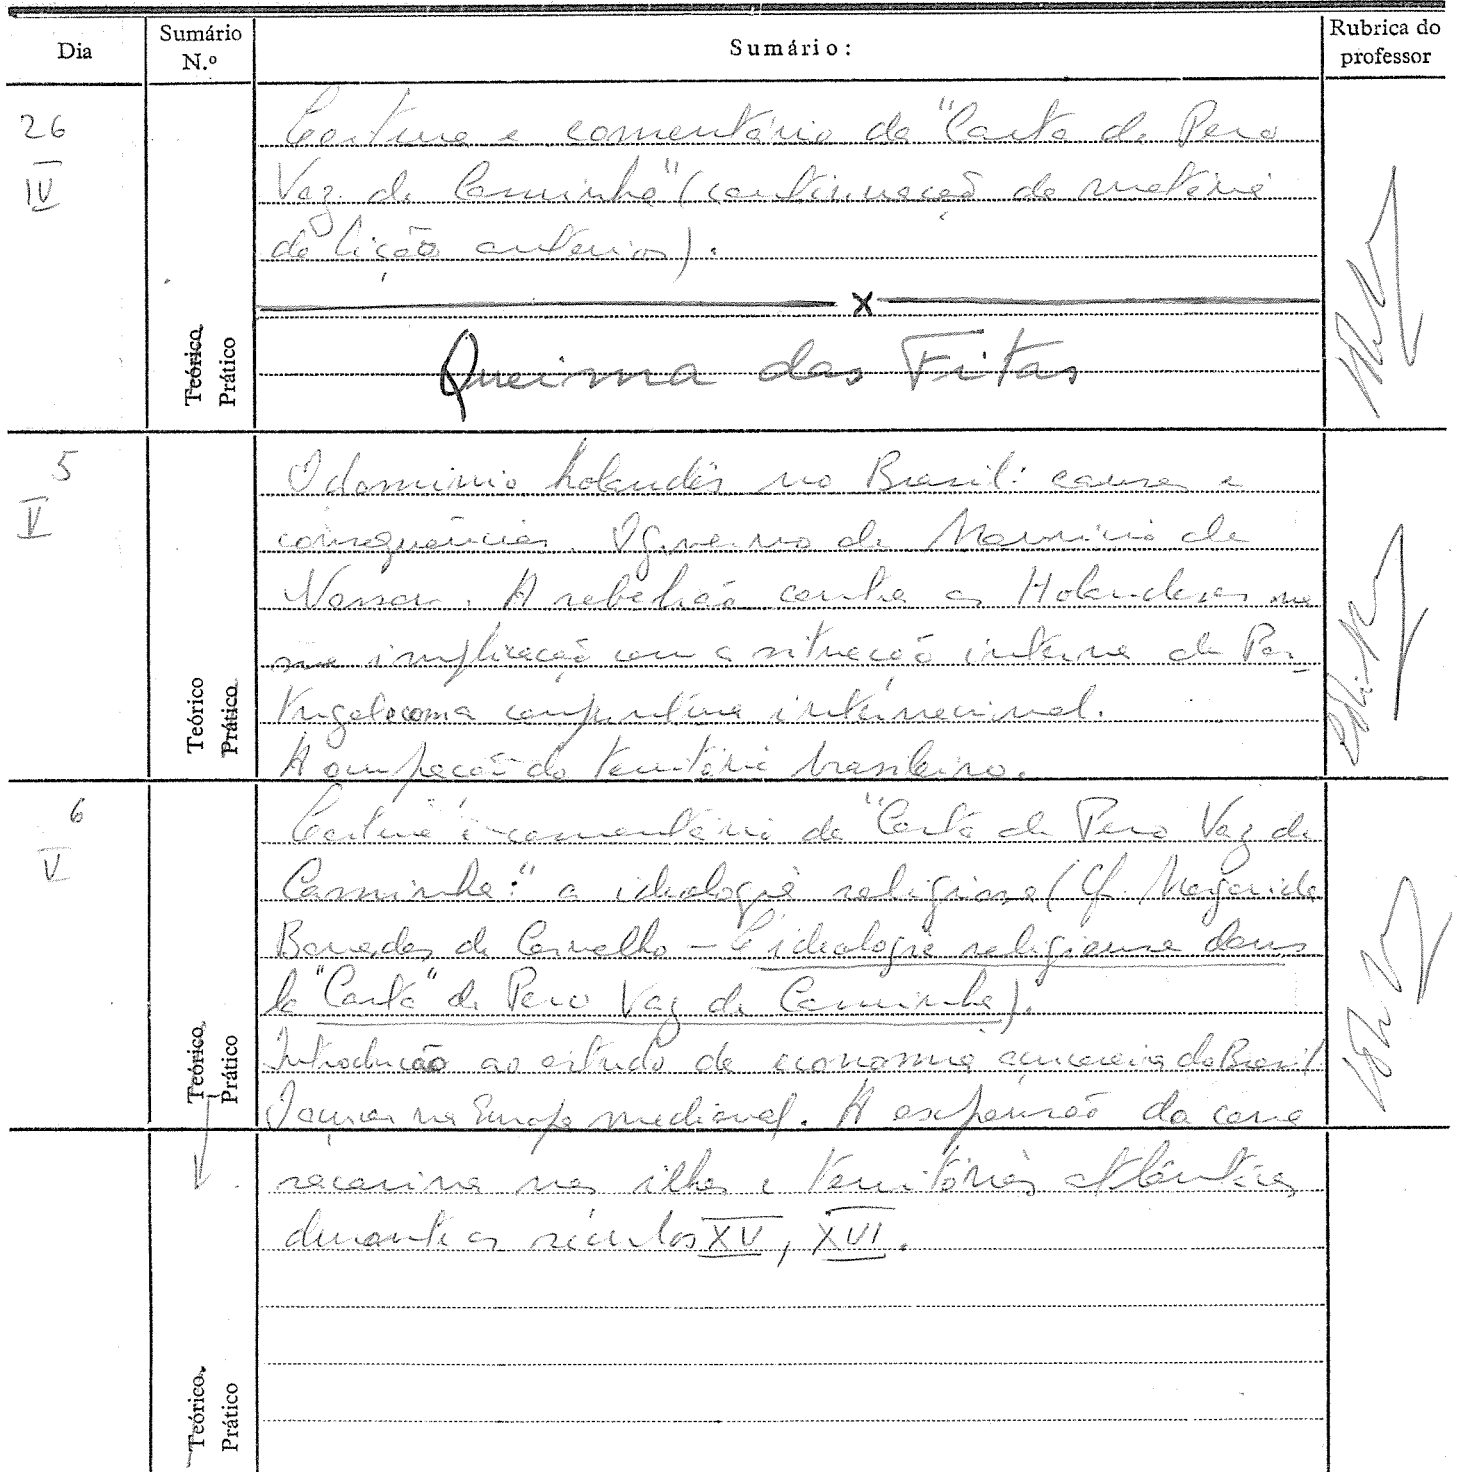 Dia
Sumário
N.º
Sumário:
Rubrica do
professor
26
IV
Teórico
Prático
Leitura e comentário da "Carta de Pero
Vaz de Caminha" (continuação da matéria
da lição anterior).
x
Queima das Fitas
5
V
Teórico
Prático
O domínio holandês no Brasil: causas e
consequências. O governo de Maurício de
Nassau. A rebelião contra os Holandeses na
sua implicação com a situação interna de Por-
tugal e com a conjuntura internacional.
A ocupação do território brasileiro.
6
V
Teórico
Prático
Leitura e comentário da "Carta de Pero Vaz de
Caminha:" a ideologia religiosa (Cf. Margarida
Barradas de Carvalho — L'idéologie religieuse dans
la "Carta" de Pero Vaz de Caminha).
Introdução ao estudo da economia açucareira do Brasil
O açúcar na Europa medieval. A expansão da cana
sacarina nas ilhas e territórios atlânticos
durante os séculos XV, XVI.
Teórico
Prático